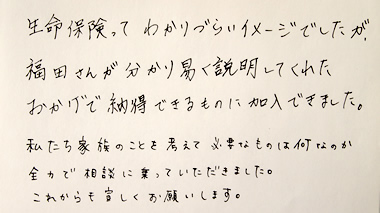 生命保険って わかりづらいイメージでしたが、
福田さんが分かり易く説明してくれた
おかげで納得できるものに加入できました。
私たち家族のことを考えて 必要なものは何なのか
全力で相談に乗っていただきました。
これからも宜しくお願いします。